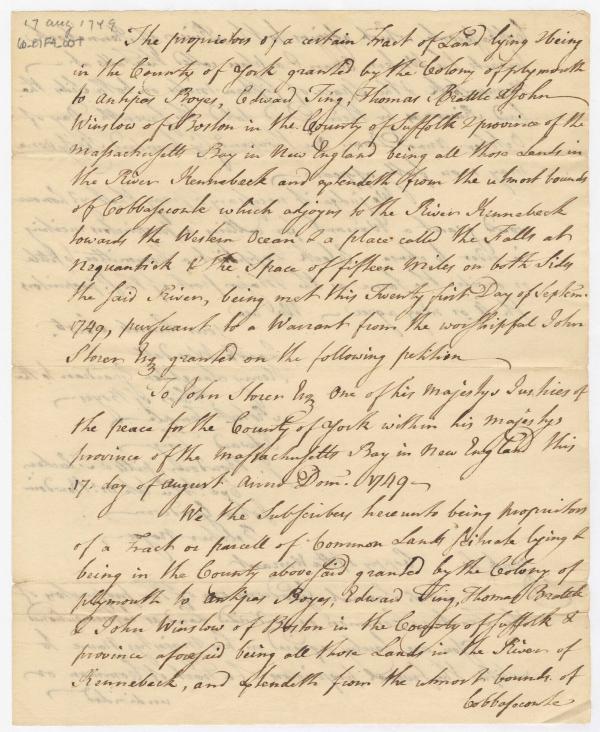 17 aug 1749
The proprietors of a certain Tract of Land lying & being
in the County of York granted by the Colony of plymouth
to Antipas Boyes, Edward Ting, Thomas Brattle & John
Winslow of Boston in the County of Suffolk & province of the
Massachusetts Bay in New England being all those Lands in
the River Kennebeck and Extendeth from the utmost bounds
of Cobbaseconte which adjoyns to the River Kennebeck
towards the Western Ocean & a place called the Falls at
Nequamkick & the Space of fifteen Miles on both Sides
the said River, being met this Twenty first Day of Septem.
1749, pursuant to a Warrant from the worshipful John
Storer Esq granted on the following petition
To John Storer Esq one of his Majestys Justices of
the peace for the County of York within his majestys
province of the Massachusetts Bay in New England this
17. day of august Anno Dom. 1749
We the Subscribers hereunto being proprietors
of a Tract or parcell of Common Lands Scituate lying &
being in the County abovesaid granted by the Colony of
plymouth to Antipas Boyes, Edward Ting, Thomas Brattle
& John Winslow of Boston in the County of Suffolk &
province aforesaid being all those Lands in the River of
Kennebeck, and Extendeth from the utmost bounds of
Cobbaseconte